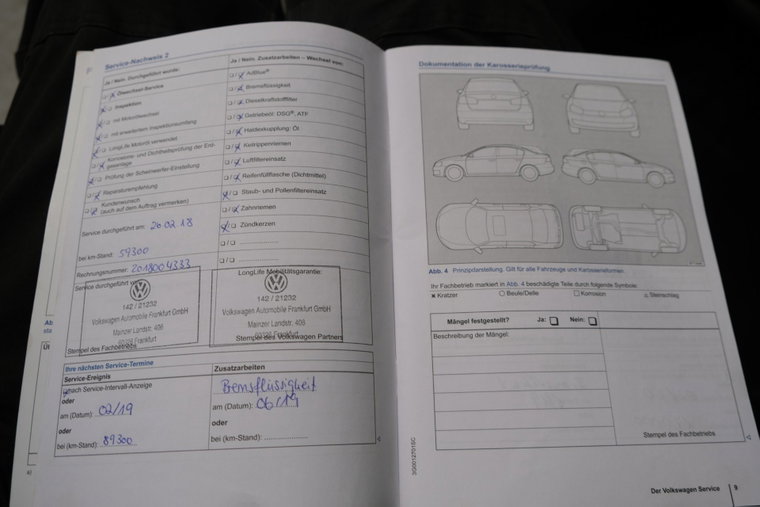 Service-Nachweis 2
Ja / Nein. Durchgeführt wurde:
Ölwechsel-Service
Inspektion
mit Motorölwechsel
mit erweitertem Inspektionsumfang
LongLife Motoröl verwendet
Korrosions- und Dichtheitsprüfung der Erdgasanlage
Prüfung der Scheinwerfer-Einstellung
Reparaturempfehlung
Kundenwunsch
(auch auf dem Auftrag vermerken)
Service durchgeführt am: 26.02.18
bei km-Stand: 59300
Rechnungsnummer: 2018004333
Service durchgeführt
142 / 21232
Volkswagen Automobile Frankfurt GmbH
Mainzer Landstr. 408
Frankfurt
Stempel des Fachbetriebs
Ja / Nein. Zusatzarbeiten – Wechsel von:
AdBlue®
Bremsflüssigkeit
Dieselkraftstofffilter
Getriebeöl: DSG®, ATF
Haldexkupplung: Öl
Keilrippenriemen
Luftfiltereinsatz
Reifenfüllflasche (Dichtmittel)
Staub- und Pollenfiltereinsatz
Zahnriemen
Zündkerzen
LongLife Mobilitätsgarantie:
142 / 21232
Volkswagen Automobile Frankfurt GmbH
Mainzer Landstr. 408
Frankfurt
Stempel des Volkswagen Partners
Ihre nächsten Service-Termine
Service-Ereignis
nach Service-Intervall-Anzeige
oder
am (Datum): 02/19
oder
bei (km-Stand): 89300
Zusatzarbeiten
Bremsflüssigkeit
am (Datum): 06/19
oder
bei (km-Stand):
Dokumentation der Karosserieprüfung
Abb. 4 Prinzipdarstellung. Gilt für alle Fahrzeuge und Karosserieformen.
Ihr Fachbetrieb markiert in Abb. 4 beschädigte Teile durch folgende Symbole:
Kratzer
Beule/Delle
Korrosion
Steinschlag
Mängel festgestellt? Ja: Nein:
Beschreibung der Mängel:
Stempel des Fachbetriebs
3G0012701SC
Der Volkswagen Service 9